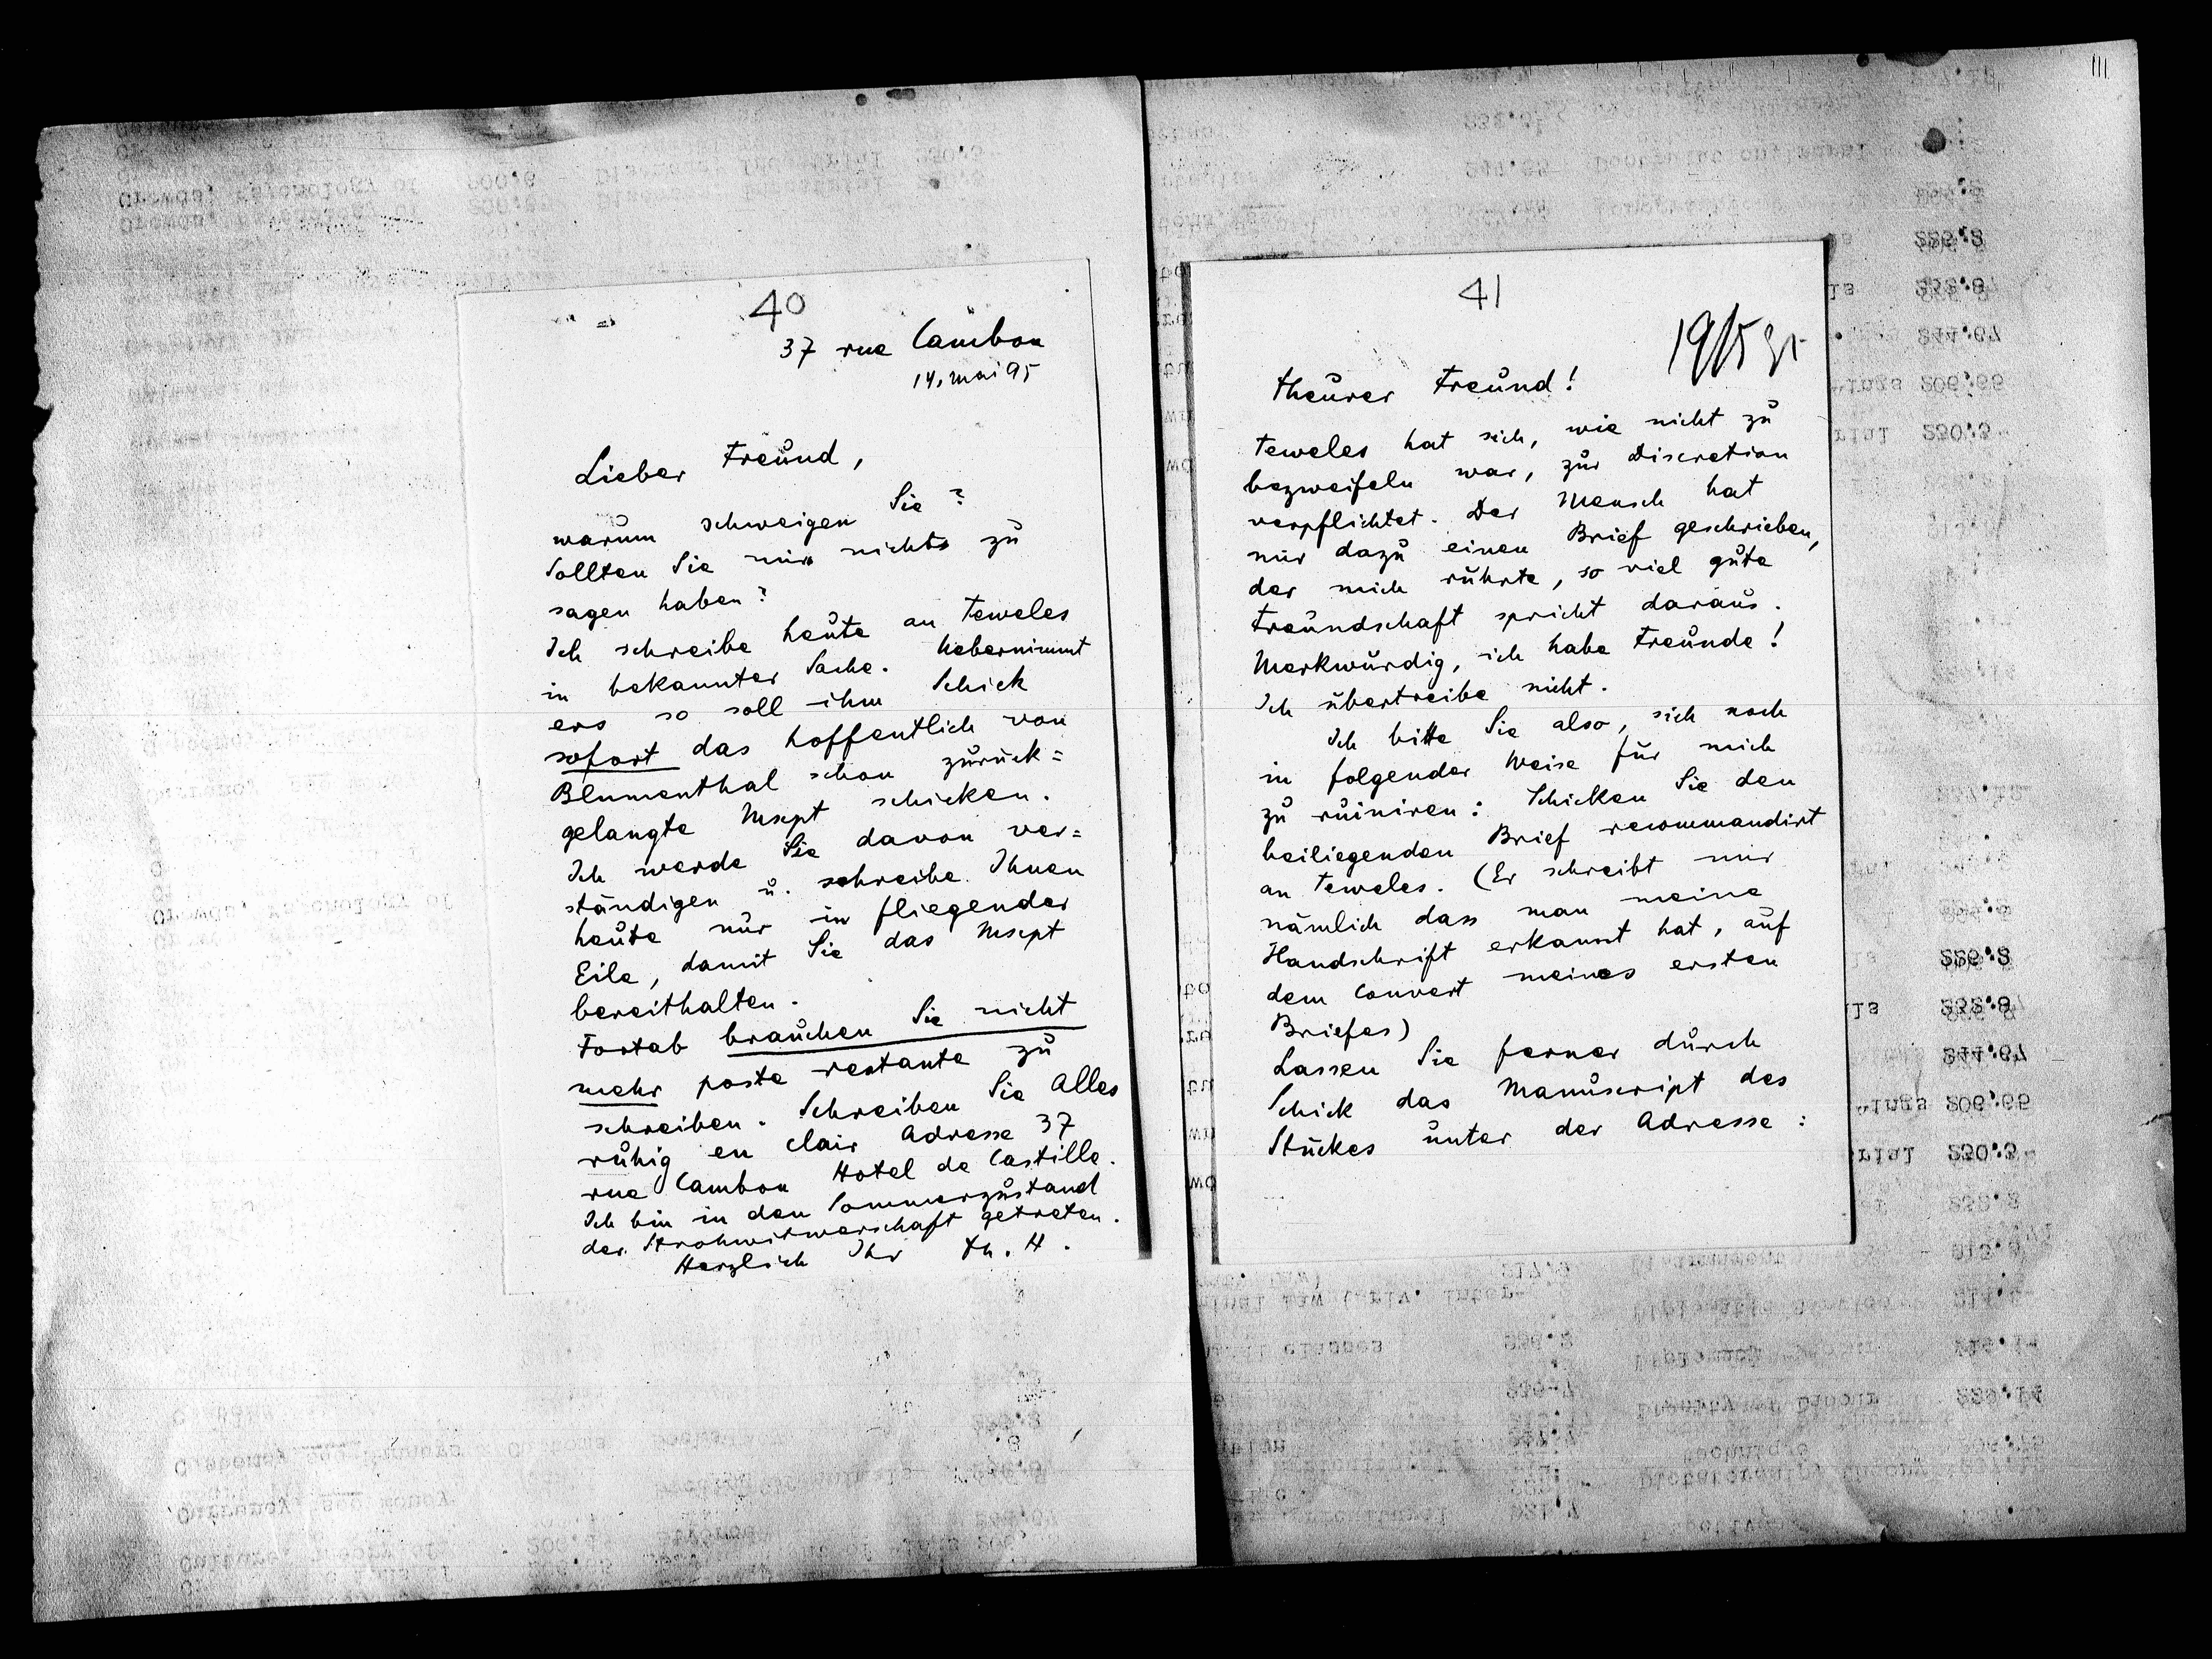 40
37 rue Cambon
14. mai 95
Lieber Freund,
warum schweigen Sie?
Sollten Sie mir nichts zu
sagen haben?
Ich schreibe heute an Teweles
in bekannter Sache. Uebernimmt
ers so soll ihm Schick
sofort das hoffentlich von
Blumenthal schon zurück=
gelangte Mscpt schicken.
Ich werde Sie davon ver=
ständigen u. schreibe Ihnen
heute nur in fliegender
Eile, damit Sie das Mscpt
bereithalten.
Fortab brauchen Sie nicht
mehr poste restante zu
schreiben. Schreiben Sie Alles
ruhig en clair Adresse 37
rue Cambon Hotel de Castille.
Ich bin in den Sommerzustand
der Strohwitwerschaft getreten.
Herzlich Ihr Th. H.
41
19/5 95
Theurer Freund!
Teweles hat sich, wie nicht zu
bezweifeln war, zur Discretion
verpflichtet. Der Mensch hat
mir dazu einen Brief geschrieben,
der mich rührte, so viel gute
Freundschaft spricht daraus.
Merkwürdig, ich habe Freunde!
Ich übertreibe nicht.
Ich bitte Sie also, sich noch
in folgender Weise für mich
zu ruiniren: Schicken Sie den
beiliegenden Brief recommandirt
an Teweles. (Er schreibt mir
nämlich dass man meine
Handschrift erkannt hat, auf
dem Couvert meines ersten
Briefes)
Lassen Sie ferner durch
Schick das Manuscript des
Stückes unter der Adresse: